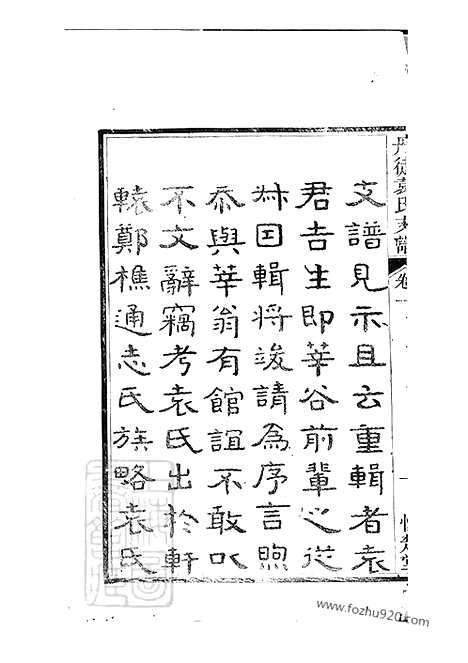 丹徒袁氏支譜 卷一
支譜見示且云重輯者袁
君吉生即華谷前輩之從
叔因輯將竣請為序言煦
忝與華翁有館誼不敢以
不文辭竊考袁氏出於軒
轅鄭樵通志氏族略袁氏
www.fozhu920.com